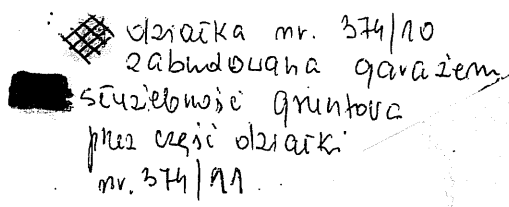 działka nr. 374/10
zabudowana garażem
służebność gruntowa
przez część działki
nr. 374/11